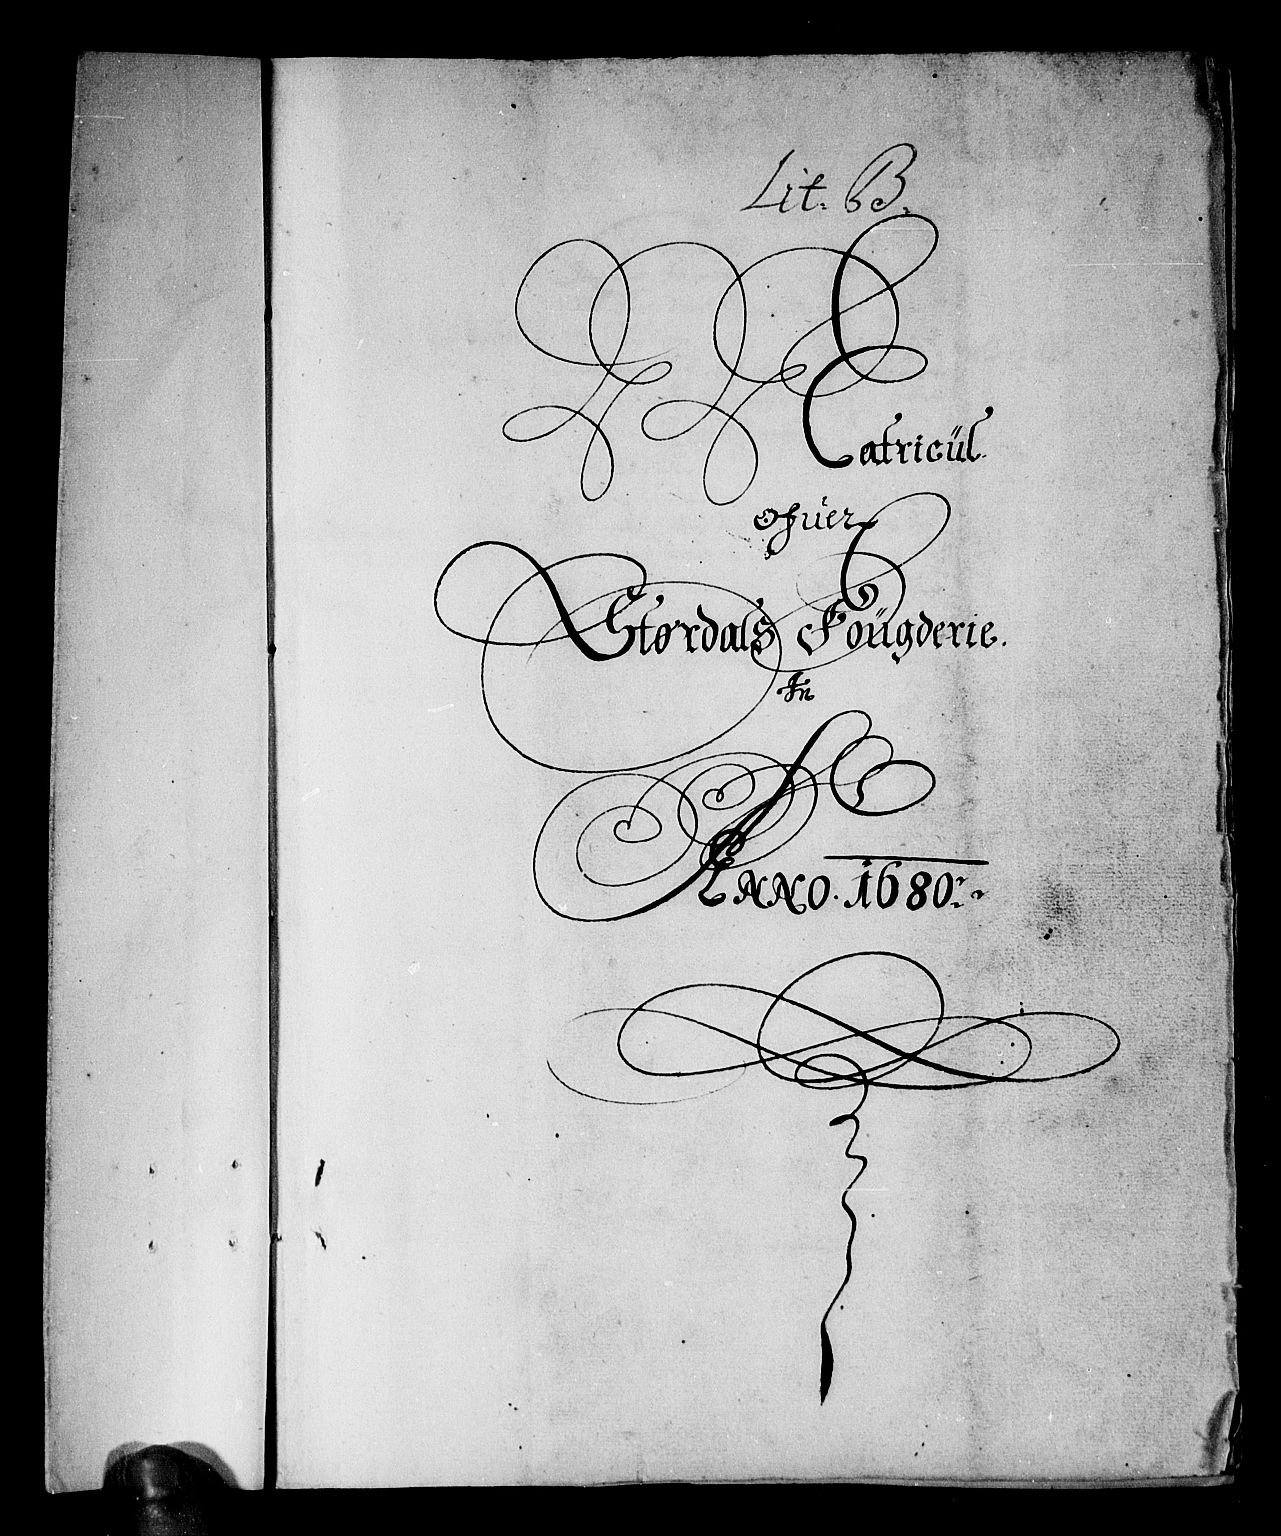 Lit. B.
Matricül
ofüer
Størdals Foügderie.
In
Anno. 1680.